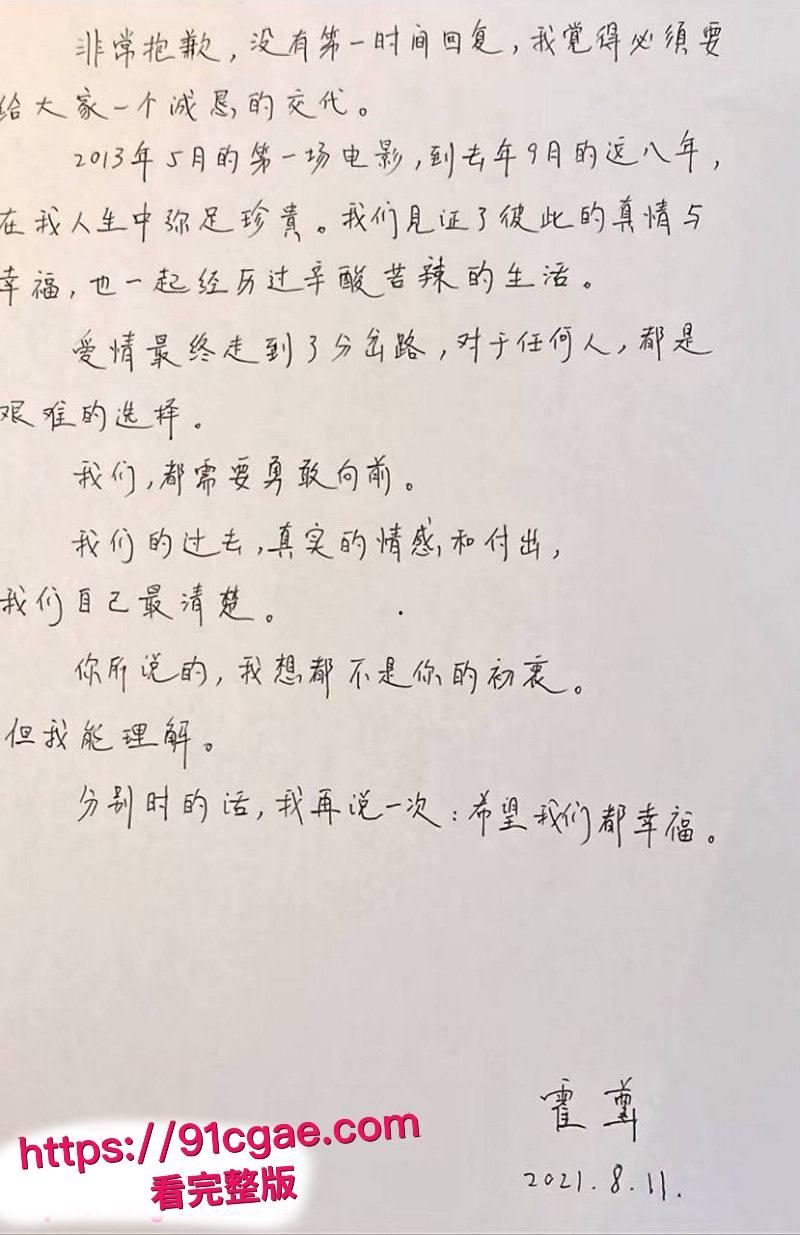 非常抱歉，没有第一时间回复，我觉得必须要
给大家一个诚恳的交代。
2013年5月的第一场电影，到去年9月的这八年，
在我人生中弥足珍貴。我们见证了彼此的真情与
幸福，也一起经历过辛酸苦辣的生活。
爱情最终走到了分岔路，对于任何人，都是
艰难的选择。
我们，都需要勇敢向前。
我们的过去，真实的情感和付出，
我们自己最清楚。
你所说的，我想都不是你的初衷。
但我能理解。
分别时的话，我再说一次：希望我们都幸福。
霍尊
2021.8.11.
https://91cgae.com
看完整版